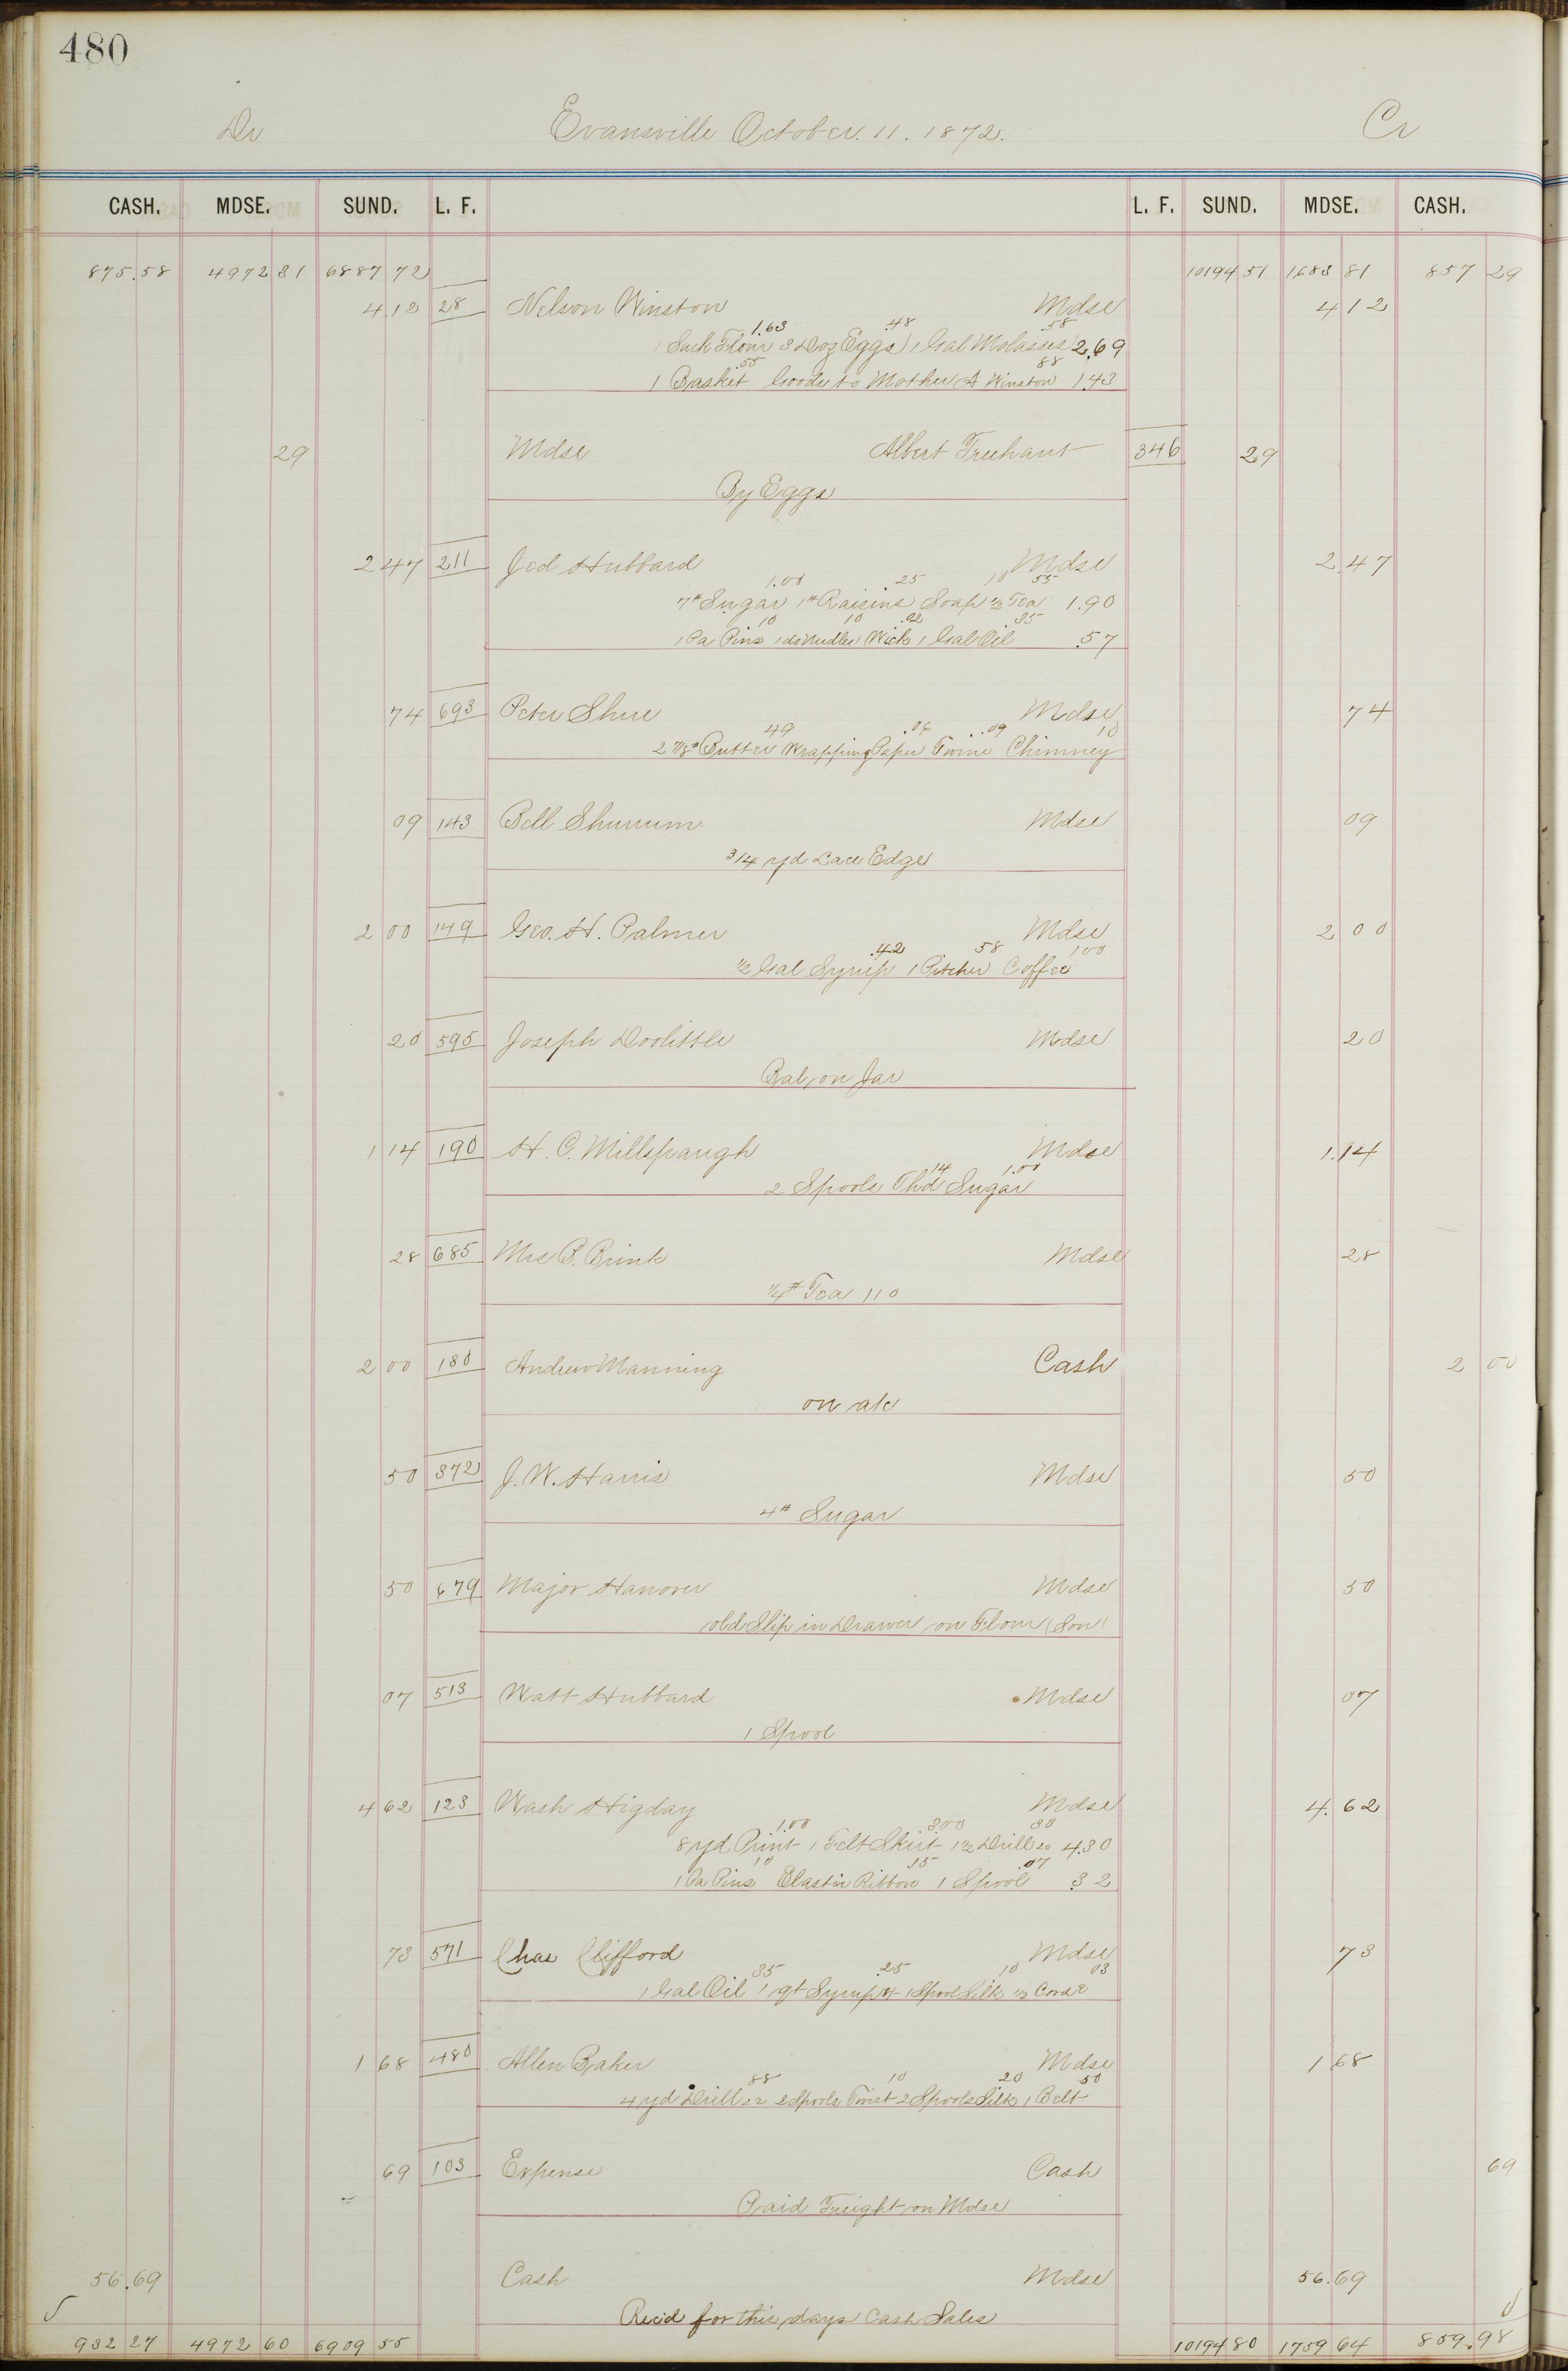 480
Dr Evansville October. 11. 1872. Cr
CASH. MDSE. SUND. L. F. L. F. SUND. MDSE. CASH.
875.58 4972 31 6887 72 10194 51 1683 81 857 29
4 12 28 Nelson Winston Mdse 4 12
1.63 .48 .58
1 Sack Flour 3 Doz Eggs 1 Gal Molasses 2.69
.55 88
1 Basket Goods to Mother A Winston 1.43
29 Mdse Albert Treehant 346 29
By Eggs
2 47 211 Jed Hubbard Mdse 2.47
1.00 25 10 55
7# Sugar 1# Raisins Soap 1/2 Tea 1.90
10 10 .02 35
1 Pa Pins 1 do Needles 1 Wick 1 Gal Oil .57
74 693 Peter Shue Mdse 74
49 .06 .09 10
2 7/8# Butter Wrapping Paper Twine Chimney
09 143 Bell Mdse 09
3/4 yd Lace Edge
2 00 149 Geo. H. Palmer Mdse 2 00
.42 58 1 00
1/2 Gal Syrup 1 Pitcher Coffee
20 595 Joseph Doolittle Mdse 20
Bal, on Jar
1 14 190 H. C. Millspaugh Mdse 1.14
14 1.00
2 Spools Thd Sugar
28 685 Mrs P. Brink Mdse 28
1/4# Tea 110
2 00 180 Andrew Manning Cash 2 00
on a/c
50 372 J. W. Harris Mdse 50
4# Sugar
50 679 Major Hanover Mdse 50
old Slip in Drawer on Flour (Son)
07 513 Watt Hubbard Mdse 07
1 Spool
4 62 123 Wash Higday Mdse 4.62
1.00 3.00 30
8 yd Print 1 Felt Skirt 1 1/2 Drill 20 4.30
10 .15 .07
1 Pa Pins Elastic Ribbon 1 Spool 32
73 571 Chas Clifford Mdse 73
35 .25 10 03
1 Gal Oil 1 qt Syrup 1 Spool Silk 1/2 Cord
1 68 480 Allen Baker Mdse 1 68
88 10 20 50
4 yd Drill 22 2 Spools Twist 2 Spools Silk 1 Belt
69 103 Expense Cash 69
Paid Freight on Mdse
56.69 Cash Mdse 56.69
Recd for this days Cash Sales
932 27 4972 60 6909 55 10194 80 1759 64 859.98